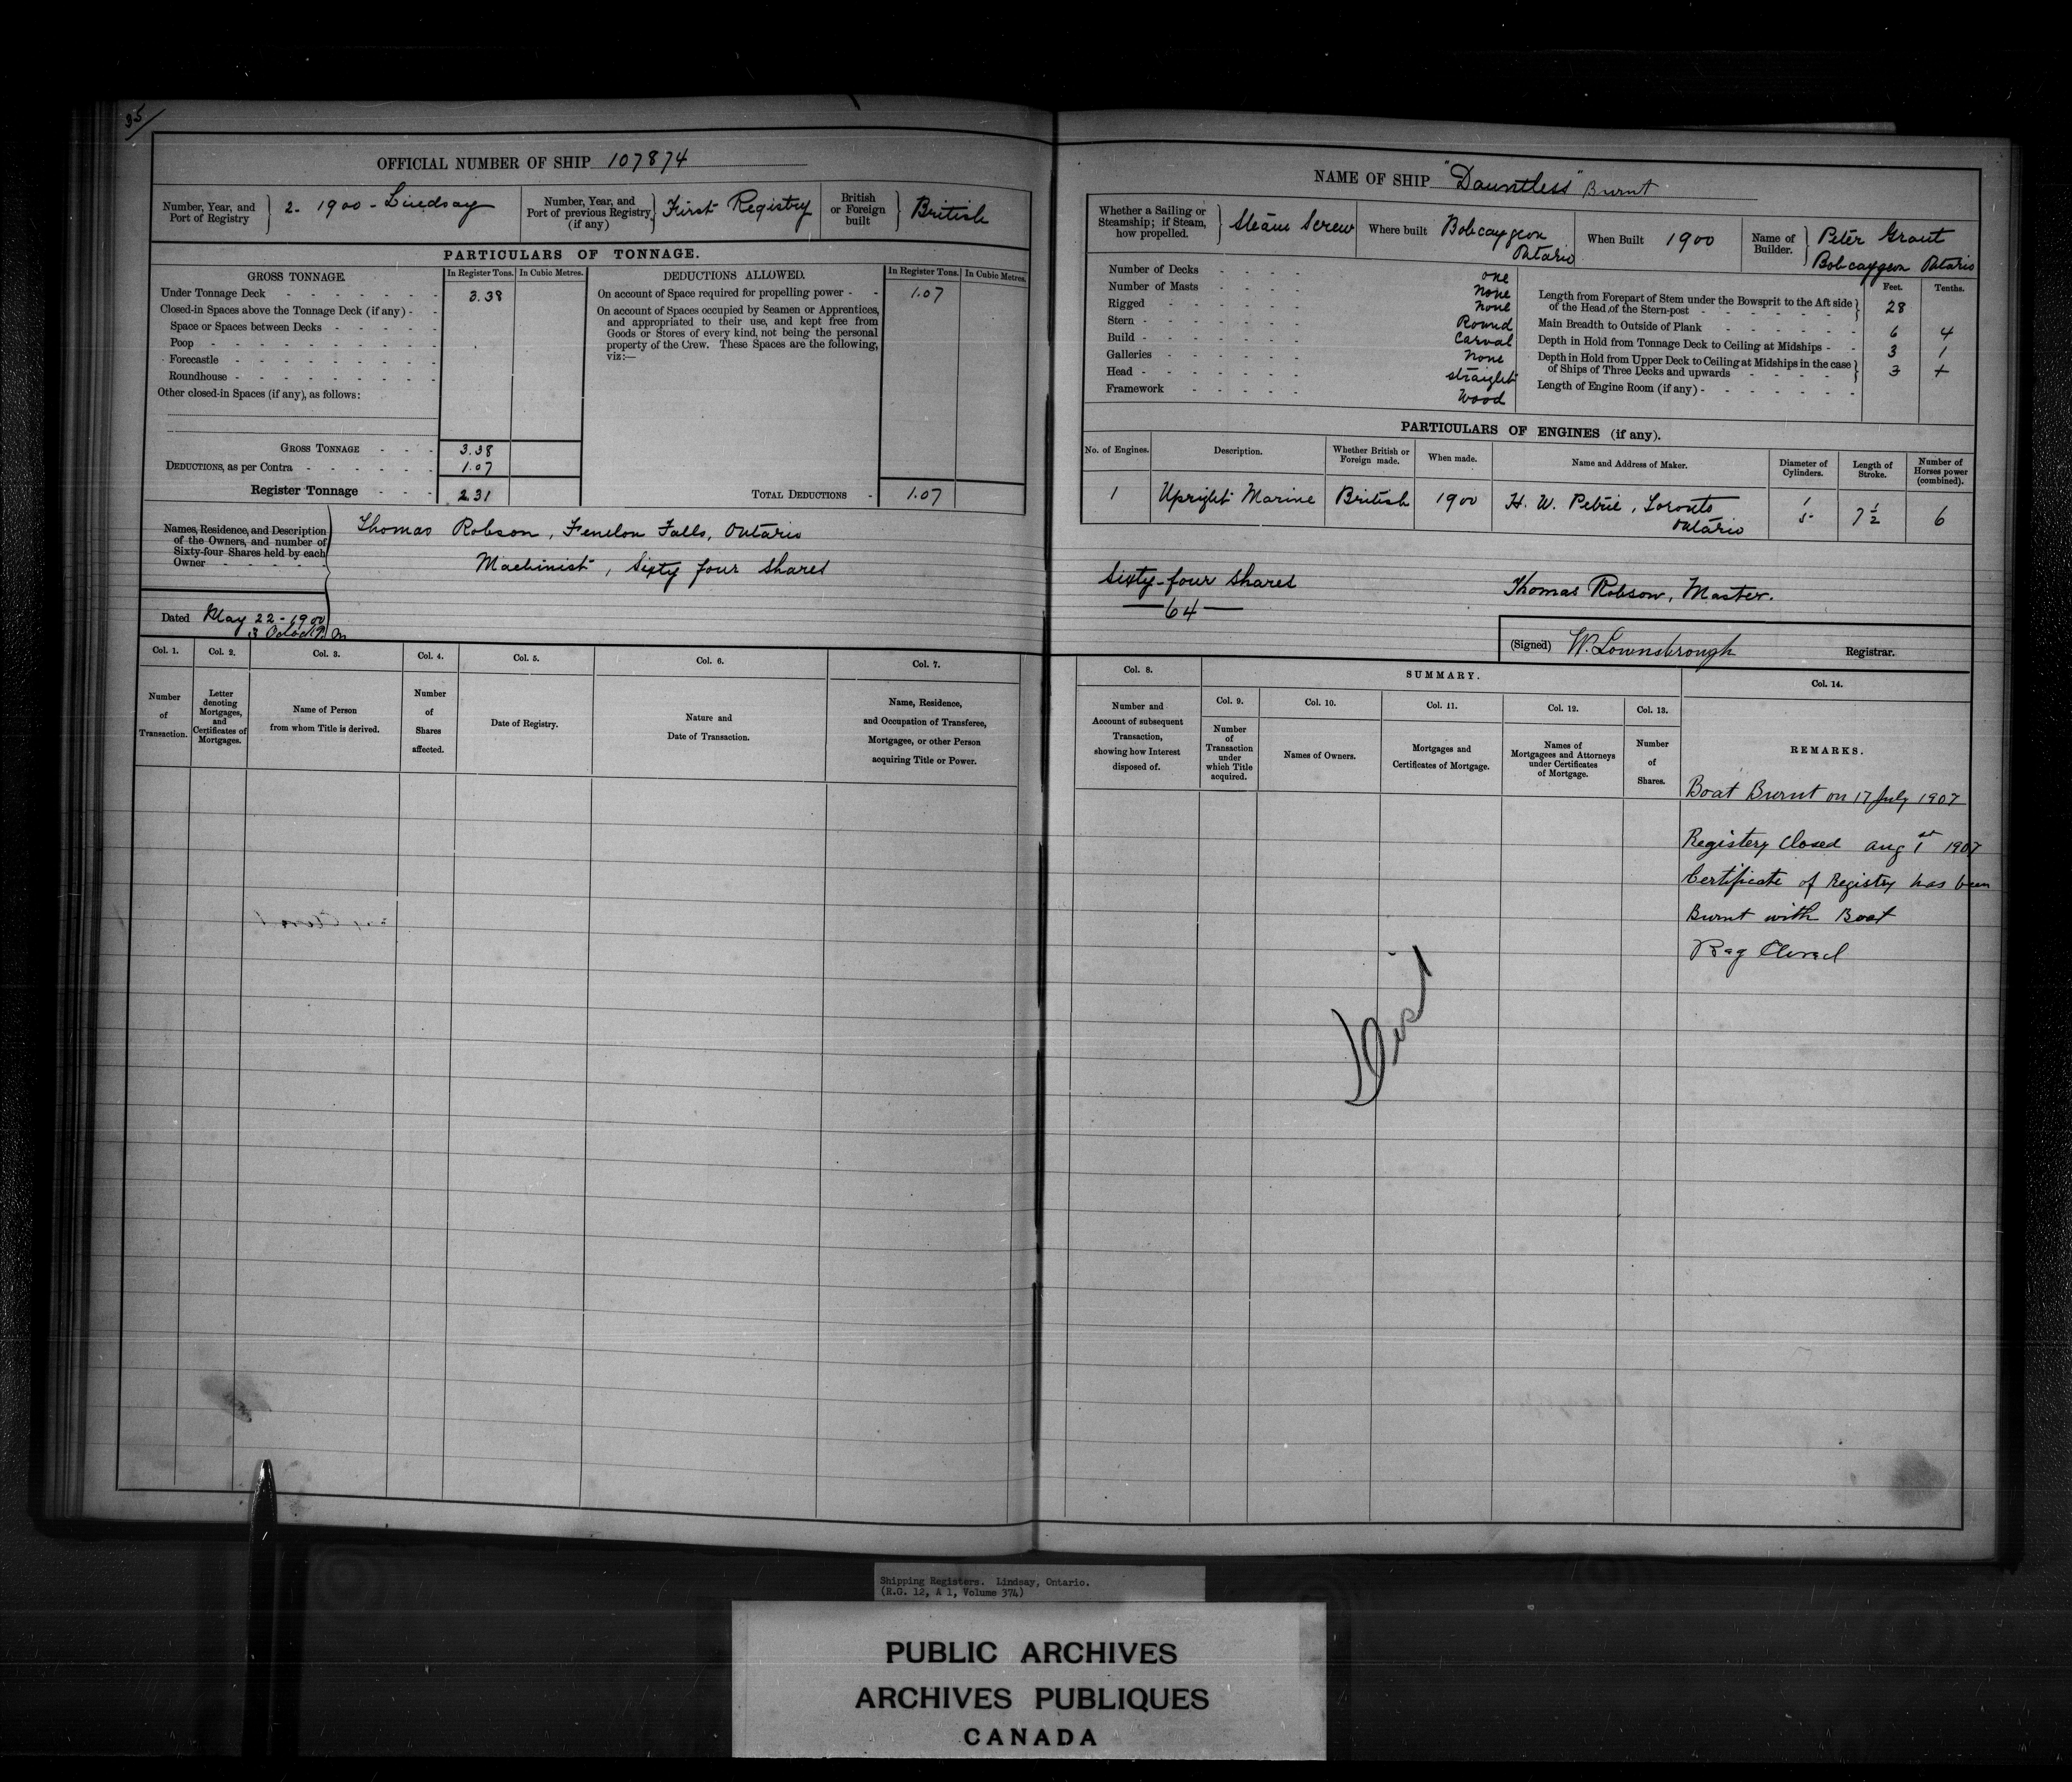 35
OFFICIAL NUMBER OF SHIP 107874
Number, Year, and Port of Registry } 2. 1900 - Lindsay
Number, Year, and Port of previous Registry (if any) } First Registry
British or Foreign built } British
PARTICULARS OF TONNAGE.
GROSS TONNAGE. In Register Tons. In Cubic Metres. DEDUCTIONS ALLOWED. In Register Tons. In Cubic Metres.
Under Tonnage Deck - - - 3.38
Closed-in Spaces above the Tonnage Deck (if any) - -
Space or Spaces between Decks - - -
Poop - - -
Forecastle - - -
Roundhouse - - -
Other closed-in Spaces (if any), as follows:
On account of Space required for propelling power - - 1.07
On account of Spaces occupied by Seamen or Apprentices,
and appropriated to their use, and kept free from
Goods or Stores of every kind, not being the personal
property of the Crew. These Spaces are the following,
viz:—
GROSS TONNAGE - - - 3.38
DEDUCTIONS, as per Contra - - - 1.07
Register Tonnage - - - 2.31
TOTAL DEDUCTIONS - 1.07
Names, Residence, and Description
of the Owners, and number of
Sixty-four Shares held by each
Owner - - -
Thomas Robson, Fenelon Falls, Ontario
Machinist, Sixty four Shares
Dated May 22 - 1900
Col. 1. Col. 2. Col. 3. Col. 4. Col. 5. Col. 6. Col. 7.
Number of Transaction.
Letter denoting Mortgages, and Certificates of Mortgages.
Name of Person from whom Title is derived.
Number of Shares affected.
Date of Registry.
Nature and Date of Transaction.
Name, Residence, and Occupation of Transferee, Mortgagee, or other Person acquiring Title or Power.
NAME OF SHIP "Dauntless" Burnt
Whether a Sailing or Steamship; if Steam, how propelled. } Steam Screw
Where built Bobcaygeon Ontario
When Built 1900
Name of Builder. } Peter Grant Bobcaygeon Ontario
Number of Decks - - - - one
Number of Masts - - - - none
Rigged - - - - none
Stern - - - - Round
Build - - - - Carval
Galleries - - - - none
Head - - - - straight
Framework - - - - Wood
Feet. Tenths.
Length from Forepart of Stem under the Bowsprit to the Aft side of the Head of the Stern-post } 28
Main Breadth to Outside of Plank - - - 6 4
Depth in Hold from Tonnage Deck to Ceiling at Midships - - 3 1
Depth in Hold from Upper Deck to Ceiling at Midships in the case of Ships of Three Decks and upwards } 3 +
Length of Engine Room (if any) - - -
PARTICULARS OF ENGINES (if any).
No. of Engines. Description. Whether British or Foreign made. When made. Name and Address of Maker. Diameter of Cylinders. Length of Stroke. Number of Horses power (combined).
1 Upright Marine British 1900 H. W. Petrie, Toronto Ontario 1 5 7 1/2 6
Sixty-four Shares
— 64 —
Thomas Robson, Master.
(Signed) W. Lownsbrough Registrar.
Col. 8. SUMMARY. Col. 14.
Col. 9. Col. 10. Col. 11. Col. 12. Col. 13.
Number and Account of subsequent Transaction, showing how Interest disposed of.
Number of Transaction under which Title acquired.
Names of Owners.
Mortgages and Certificates of Mortgage.
Names of Mortgagees and Attorneys under Certificates of Mortgage.
Number of Shares.
REMARKS.
Boat Burnt on 17 July 1907
Registery Closed Aug 1st 1907
Certificate of Registry has been
Burnt with Boat
Reg Closed
Shipping Registers. Lindsay, Ontario.
(R.G. 12, A 1, Volume 374)
PUBLIC ARCHIVES
ARCHIVES PUBLIQUES
CANADA